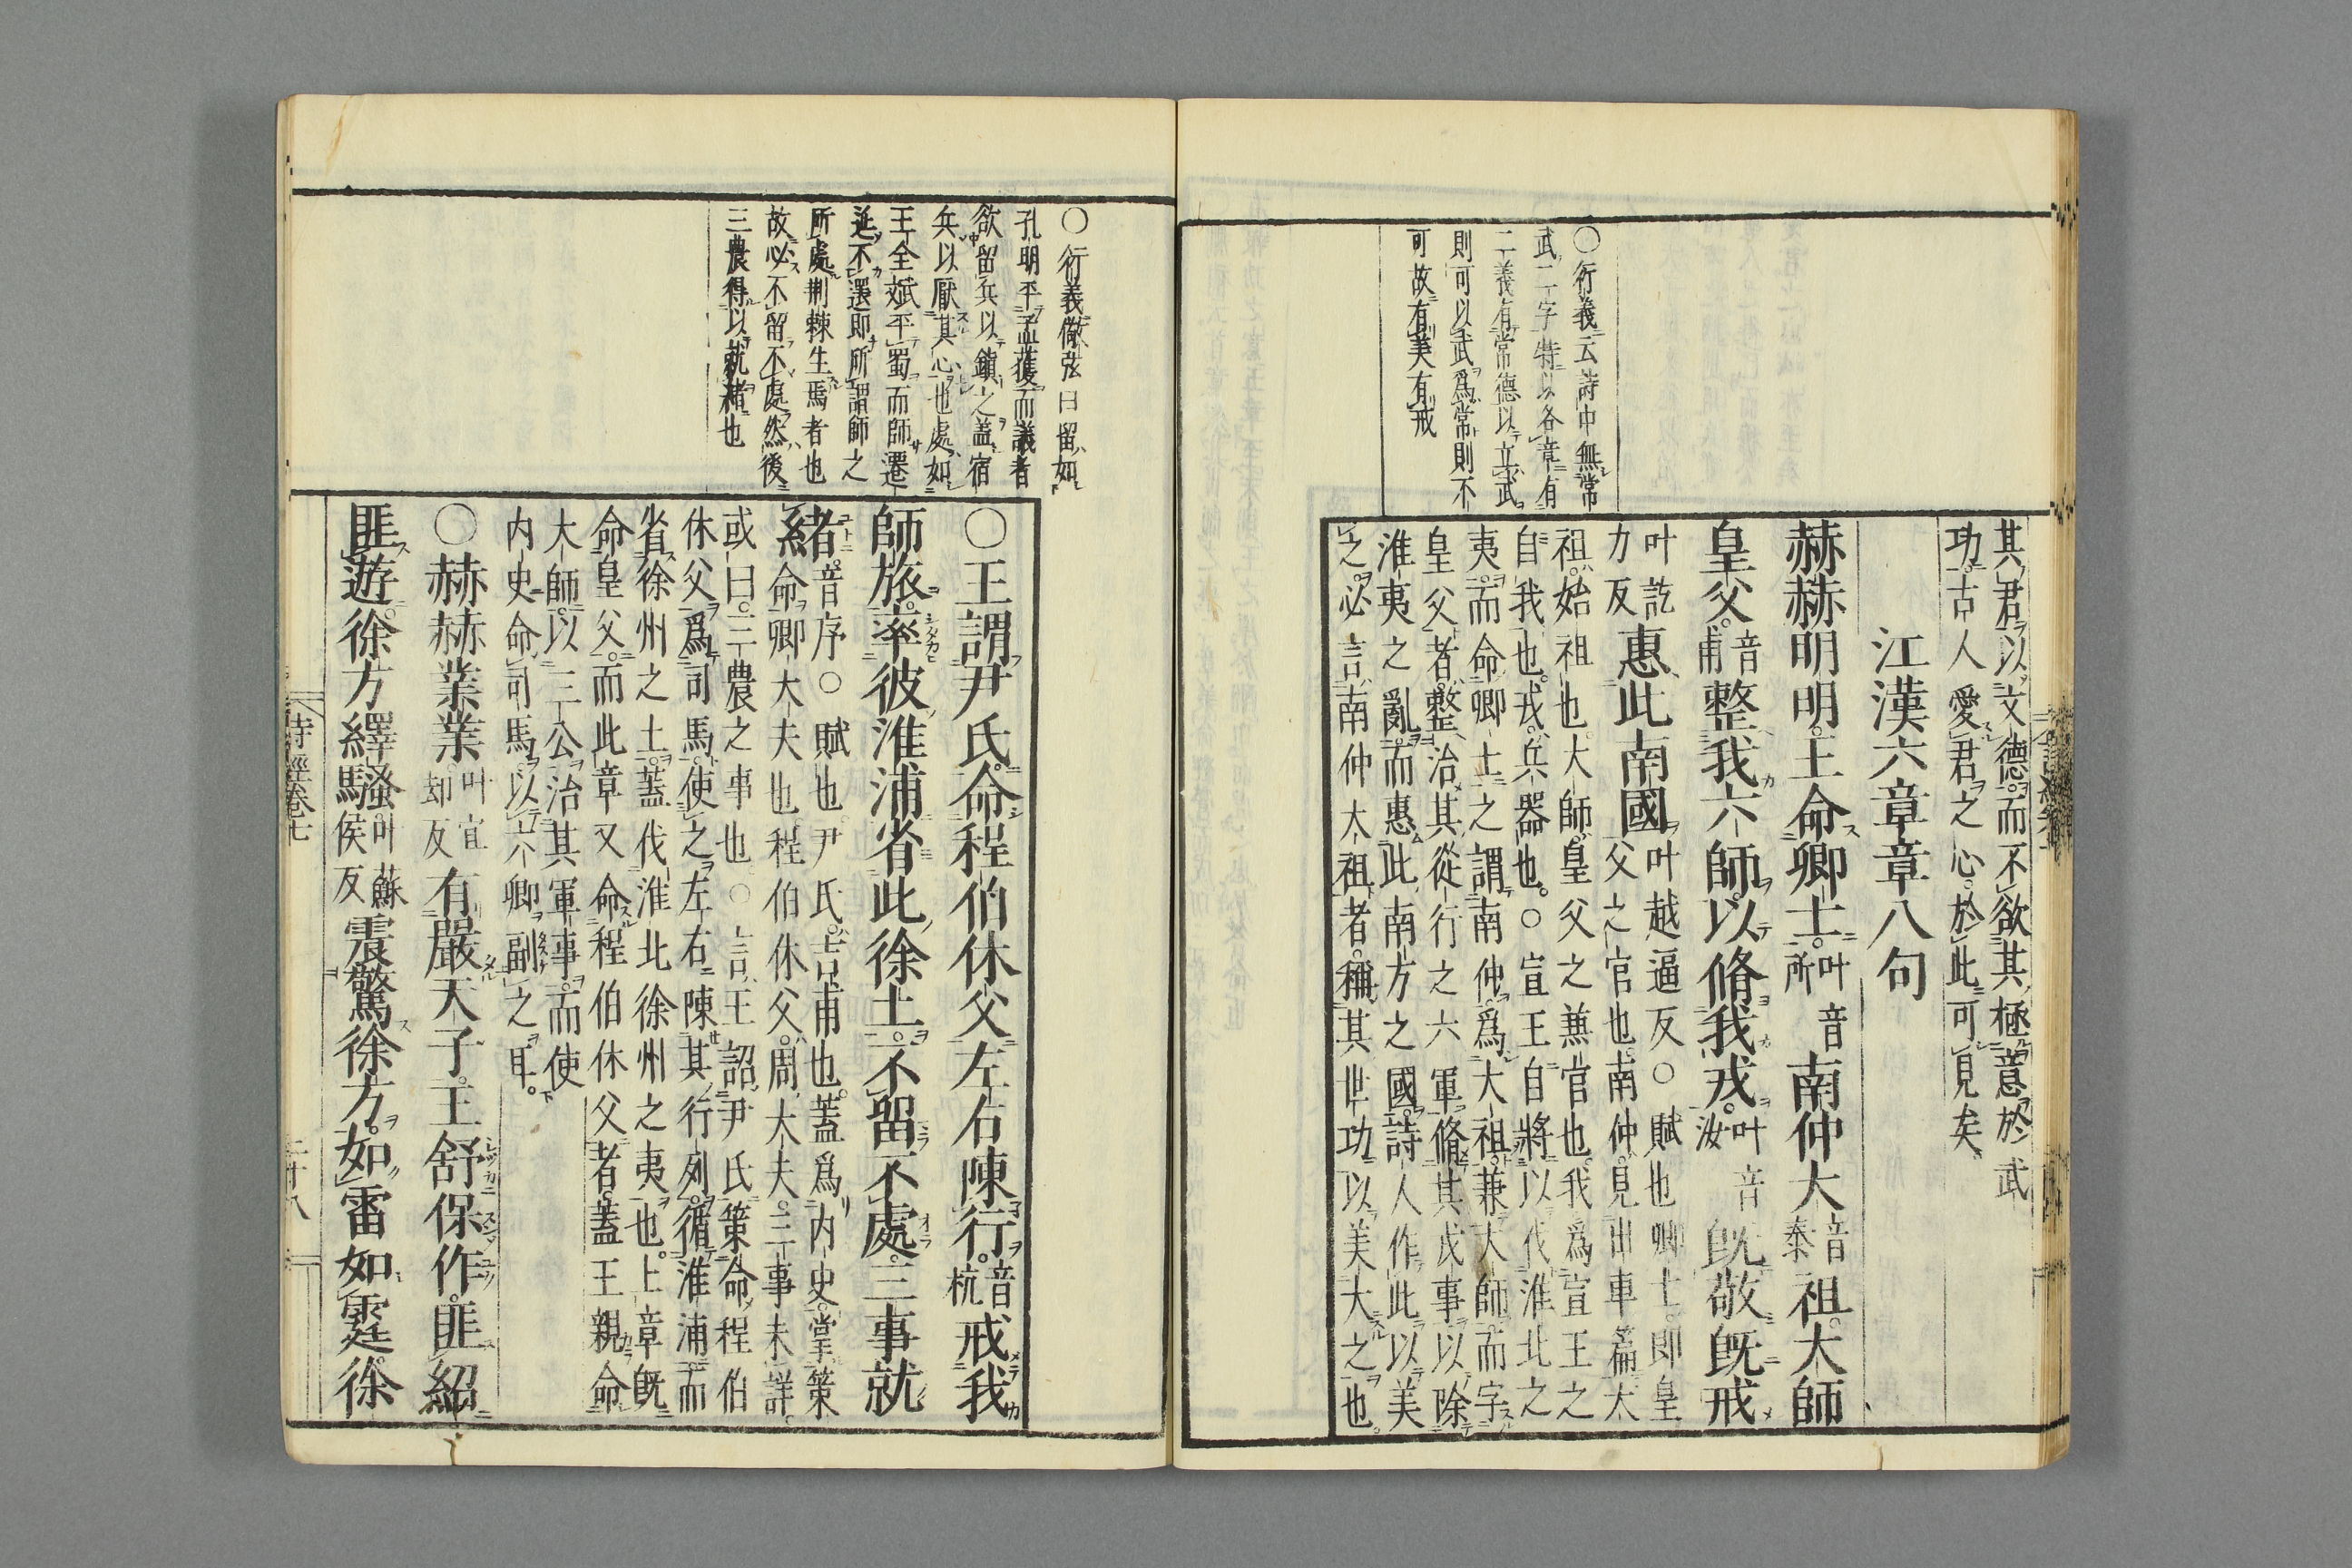 〇衍義云詩中無常
武二字特以各章有
二義有常德以立武
則可以武爲常則不
可故有美有戒
其君以文德而不欲其極意於武
功古人愛君之心於此可見矣
江漢六章章八句
赫赫明明王命卿士叶音所南仲大音泰祖大師
皇父音甫整我六師以脩我戎叶音汝既敬既戒
叶訖力反惠此南國叶越逼反〇賦也卿士即皇父之官也南仲見出車篇大
祖始祖也大師皇父之兼官也我爲宣王之
自我也戎兵器也〇宣王自將以伐淮北之
夷而命卿士之謂南仲爲大祖兼大師而字
皇父者整治其從行之六軍脩其戎事以除
淮夷之亂而惠此南方之國詩人作此以美
之必言南仲大祖者稱其世功以美大之也
〇衍義儆弦曰留如
孔明平孟獲而議者
欲留兵以鎮之蓋宿
兵以厭其心也處如
王全斌平蜀而師遷
延不還即所謂師之
所處荆棘生焉者也
故必不留不處然後
三農得以就緒也
〇王謂尹氏命程伯休父左右陳行音杭戒我
師旅率彼淮浦省此徐土不留不處三事就
緒音序〇賦也尹氏吉甫也蓋爲内史掌策命卿大夫也程伯休父周大夫三事未詳
或曰三農之事也〇言王詔尹氏策命程伯
休父爲司馬使之左右陳其行列循淮浦而
省徐州之土蓋伐淮北徐州之夷也上章既
命皇父而此章又命程伯休父者蓋王親命
大師以三公治其軍事而使
内史命司馬以六卿副之耳
〇赫赫業業叶宜却反有嚴天子王舒保作匪紹
匪遊徐方繹騷叶蘇侯反震驚徐方如雷如霆徐
詩經卷七
二十八